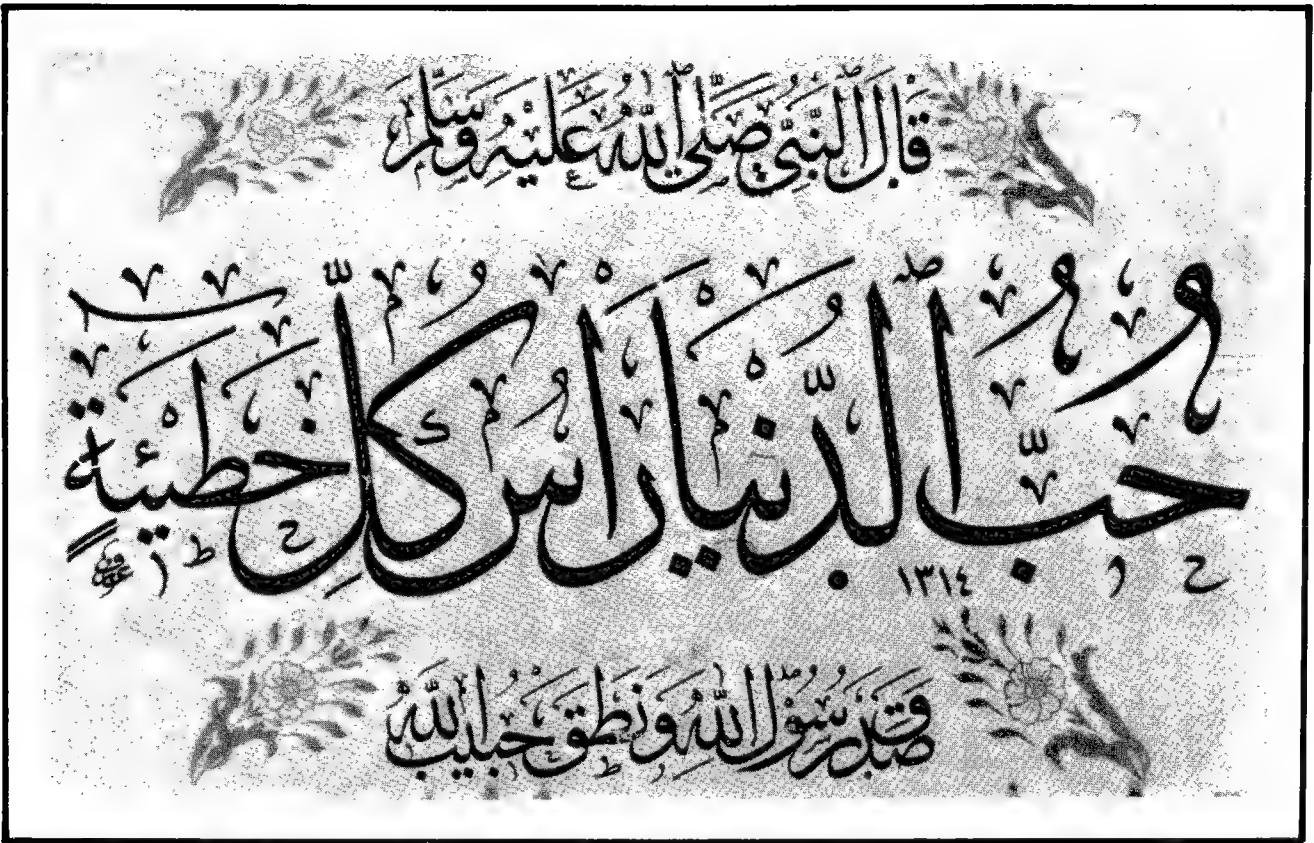 قَالَ النَّبِيُّ صَلَّى اللّٰهُ عَلَيْهِ وَسَلَّمَ
حُبُّ الدُّنْيَا رَاْسُ كُلِّ خَطِيْئَةٍ
١٣١٤
صَدَقَ رَسُوْلُ اللّٰهِ وَنَطَقَ حَبِيْبُ اللّٰهِ